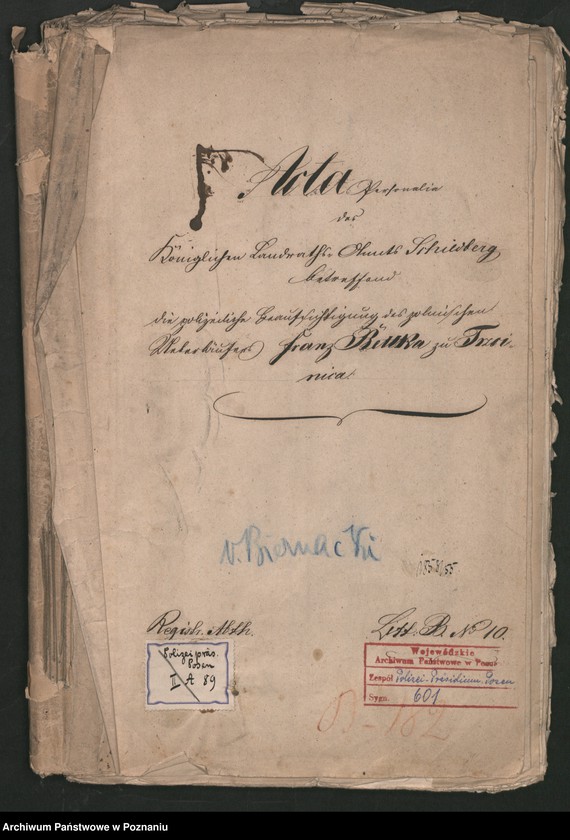 Acta Personalia
des
Königlichen Landraths-Amts Schildberg
betreffend
die polizeiliche Beaufsichtigung des polnischen
Ueberläufers Franz Bittka zu Trzci-
nica.
v. Biernacki
Registr. Abth.
Litt. B. No 10.
Polizeipräs.
Posen
I A 89
Wojewódzkie
Archiwum Państwowe w Pozn
Zespół Polizei-Präsidium Posen
Sygn. 601
Archiwum Państwowe w Poznaniu